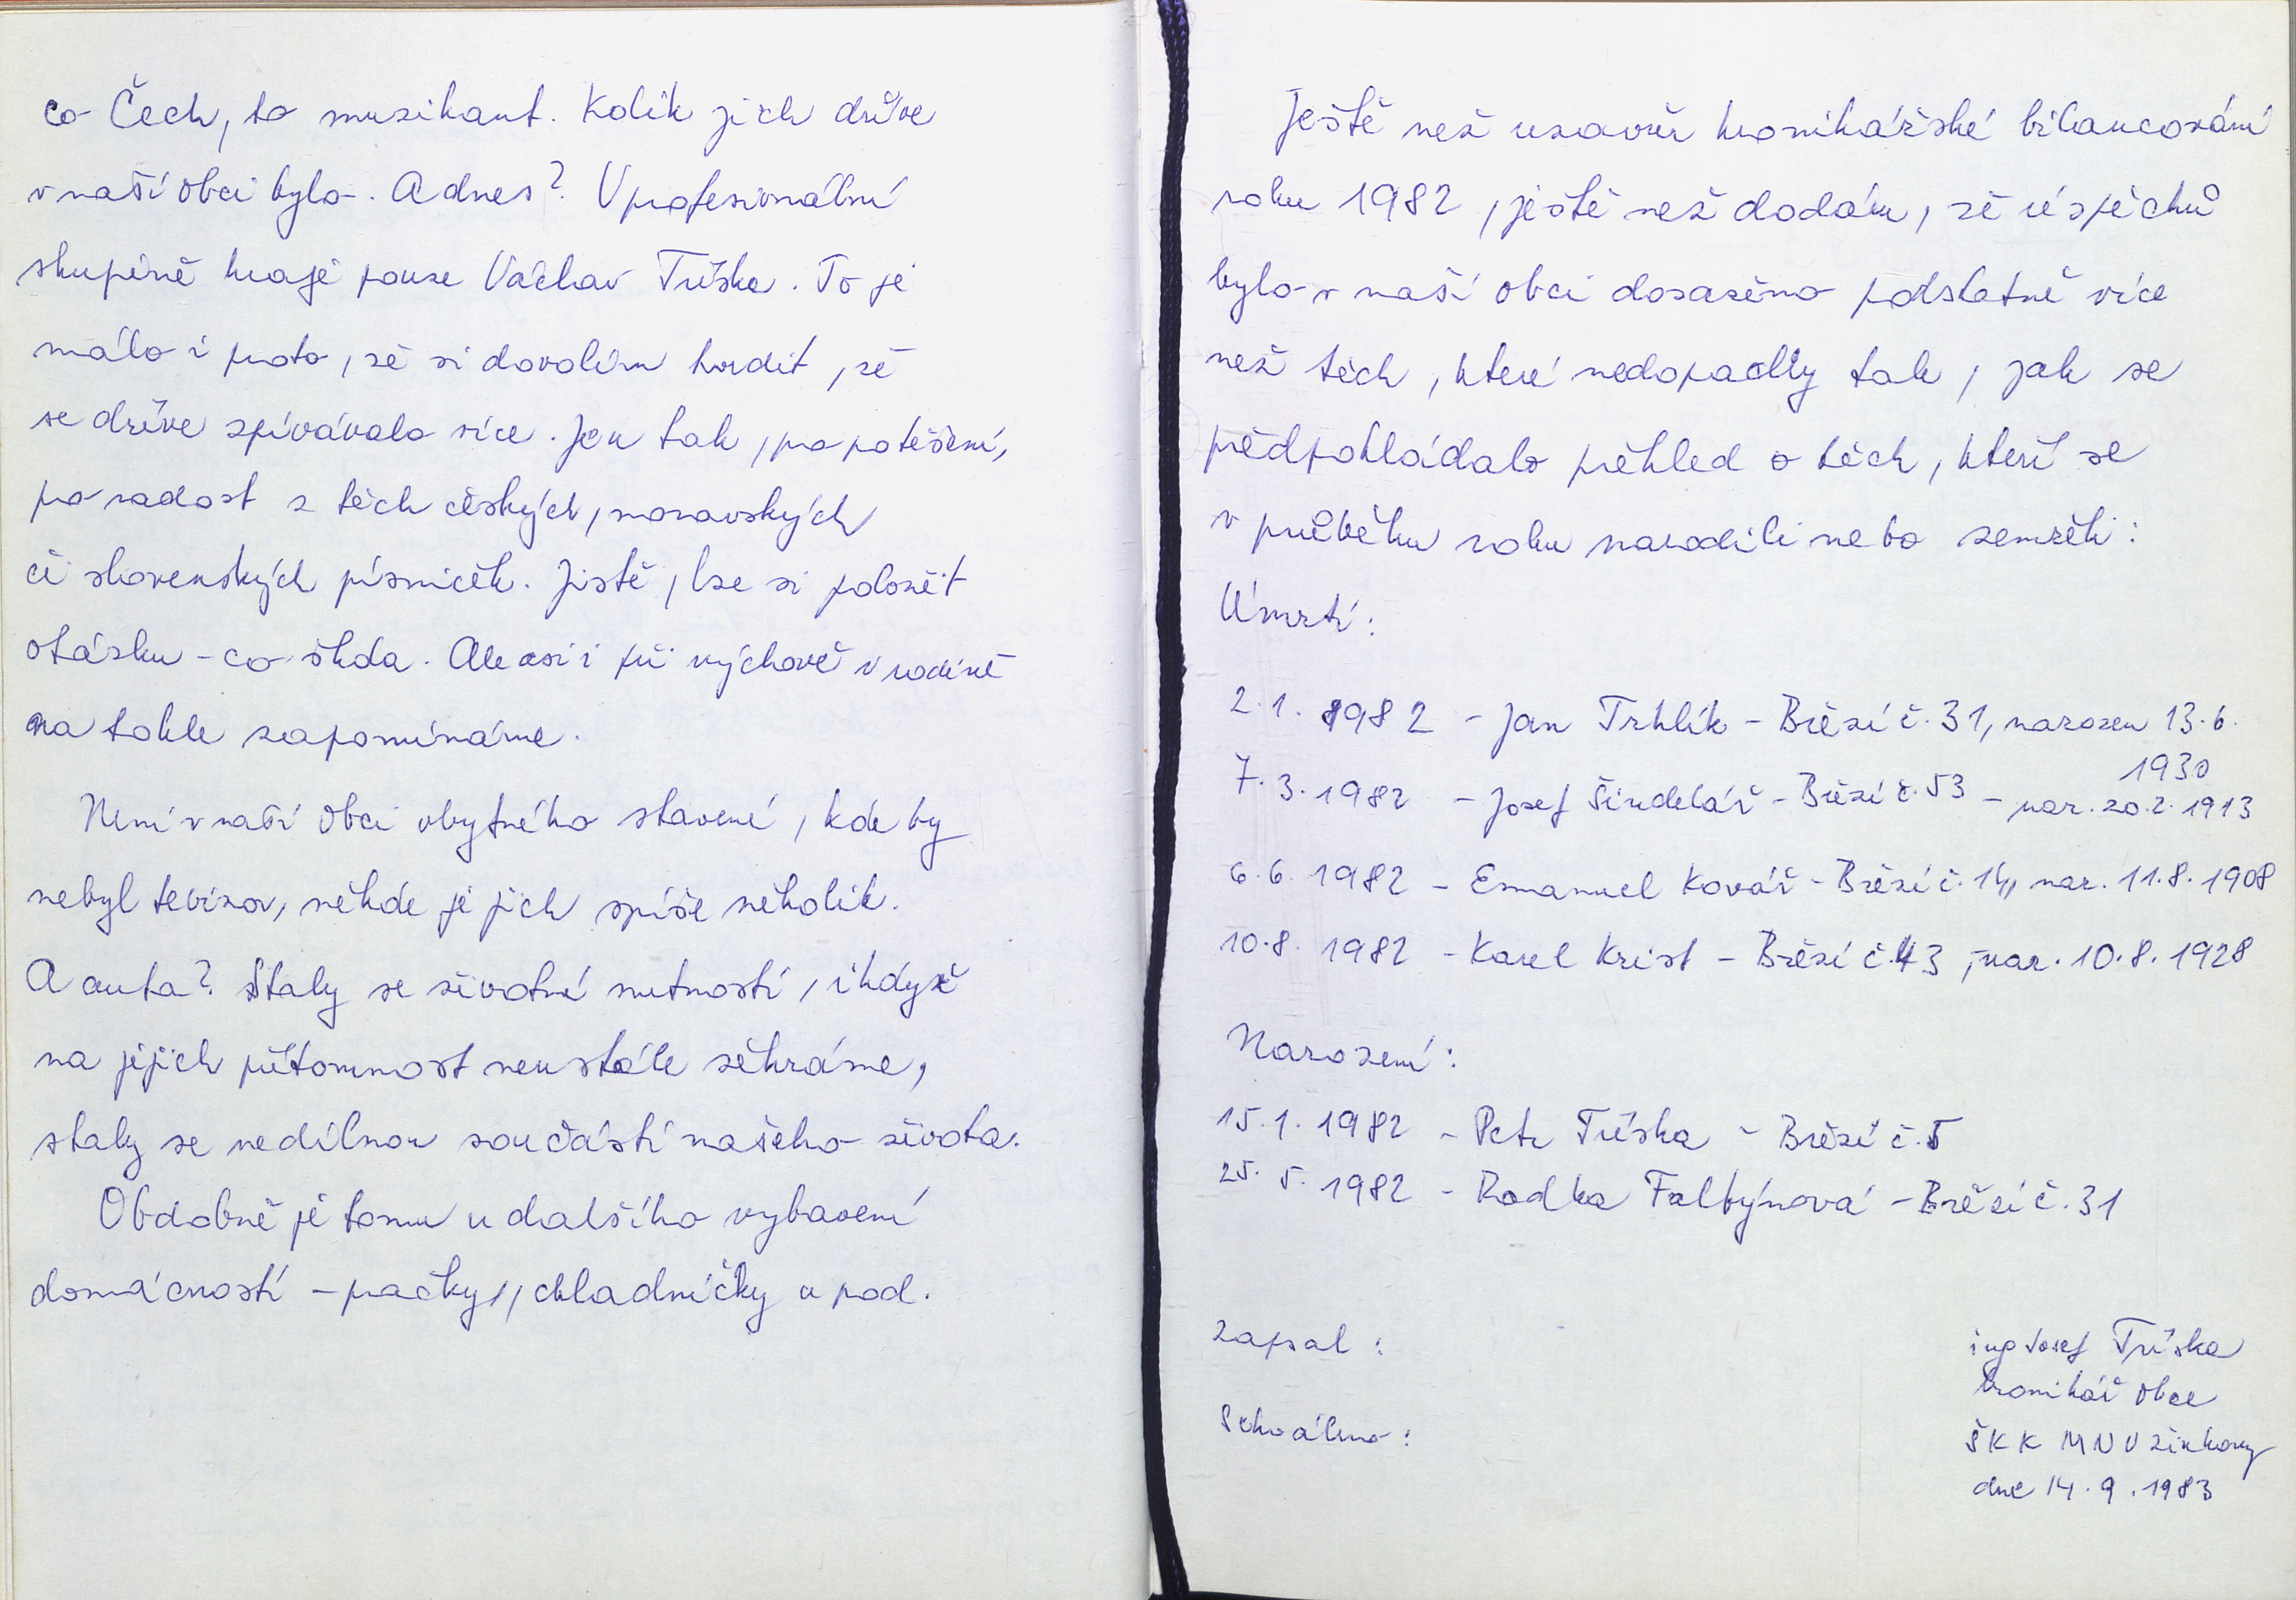 co Čech, to muzikant. Kolik jich dříve
v naší obci bylo. A dnes? V profesionální
skupině hraje pouze Václav Tříska. To je
málo i proto, že si dovolím tvrdit, že
se dříve zpívávalo více. Jen tak, pro potěšení,
pro radost z těch českých, moravských
či slovenských písniček. Jistě, lze si položit
otázku - co škda. Ale asi i při výchově v rodině
na tohle zapomínáme.
Není v naší obci obytného stavení, kde by
nebyl tevizor, někde je jich spíše několik.
A auta? Staly se životní nutností, i když
na jejich přítomnost neustále sehráme,
staly se nedílnou součástí našeho života.
Obdobně je tomu u dalšího vybavení
domácností - pračky, chladničky a pod.
Ještě než uzavřu kronikářské bilancování
roku 1982, ještě než dodám, že úspěchů
bylo v naší obci dosaženo podstatně více
než těch, které nedopadly tak, jak se
předpokládalo přehled o těch, kteří se
v průběhu roku narodili nebo zemřeli:
Úmrtí:
2.1. 1982 - Jan Trhlík - Březí č. 31, narozen 13.6.
1930
7.3.1982 - Josef Šindelář - Březí č. 53 - nar. 20.2.1913
6.6. 1982 - Emanuel Kovář - Březí č. 14, nar. 11.8.1908
10.8. 1982 - Karel Krist - Březí č. 43, nar. 10.8.1928
Narození:
15.1.1982 - Petr Tříska - Březí č. 5
25.5.1982 - Radka Faltýnová - Březí č. 31
Zapsal: ing Josef Tříska
kronikář obce
Schváleno: ŠKK MNV Žinkovy
dne 14.9.1983